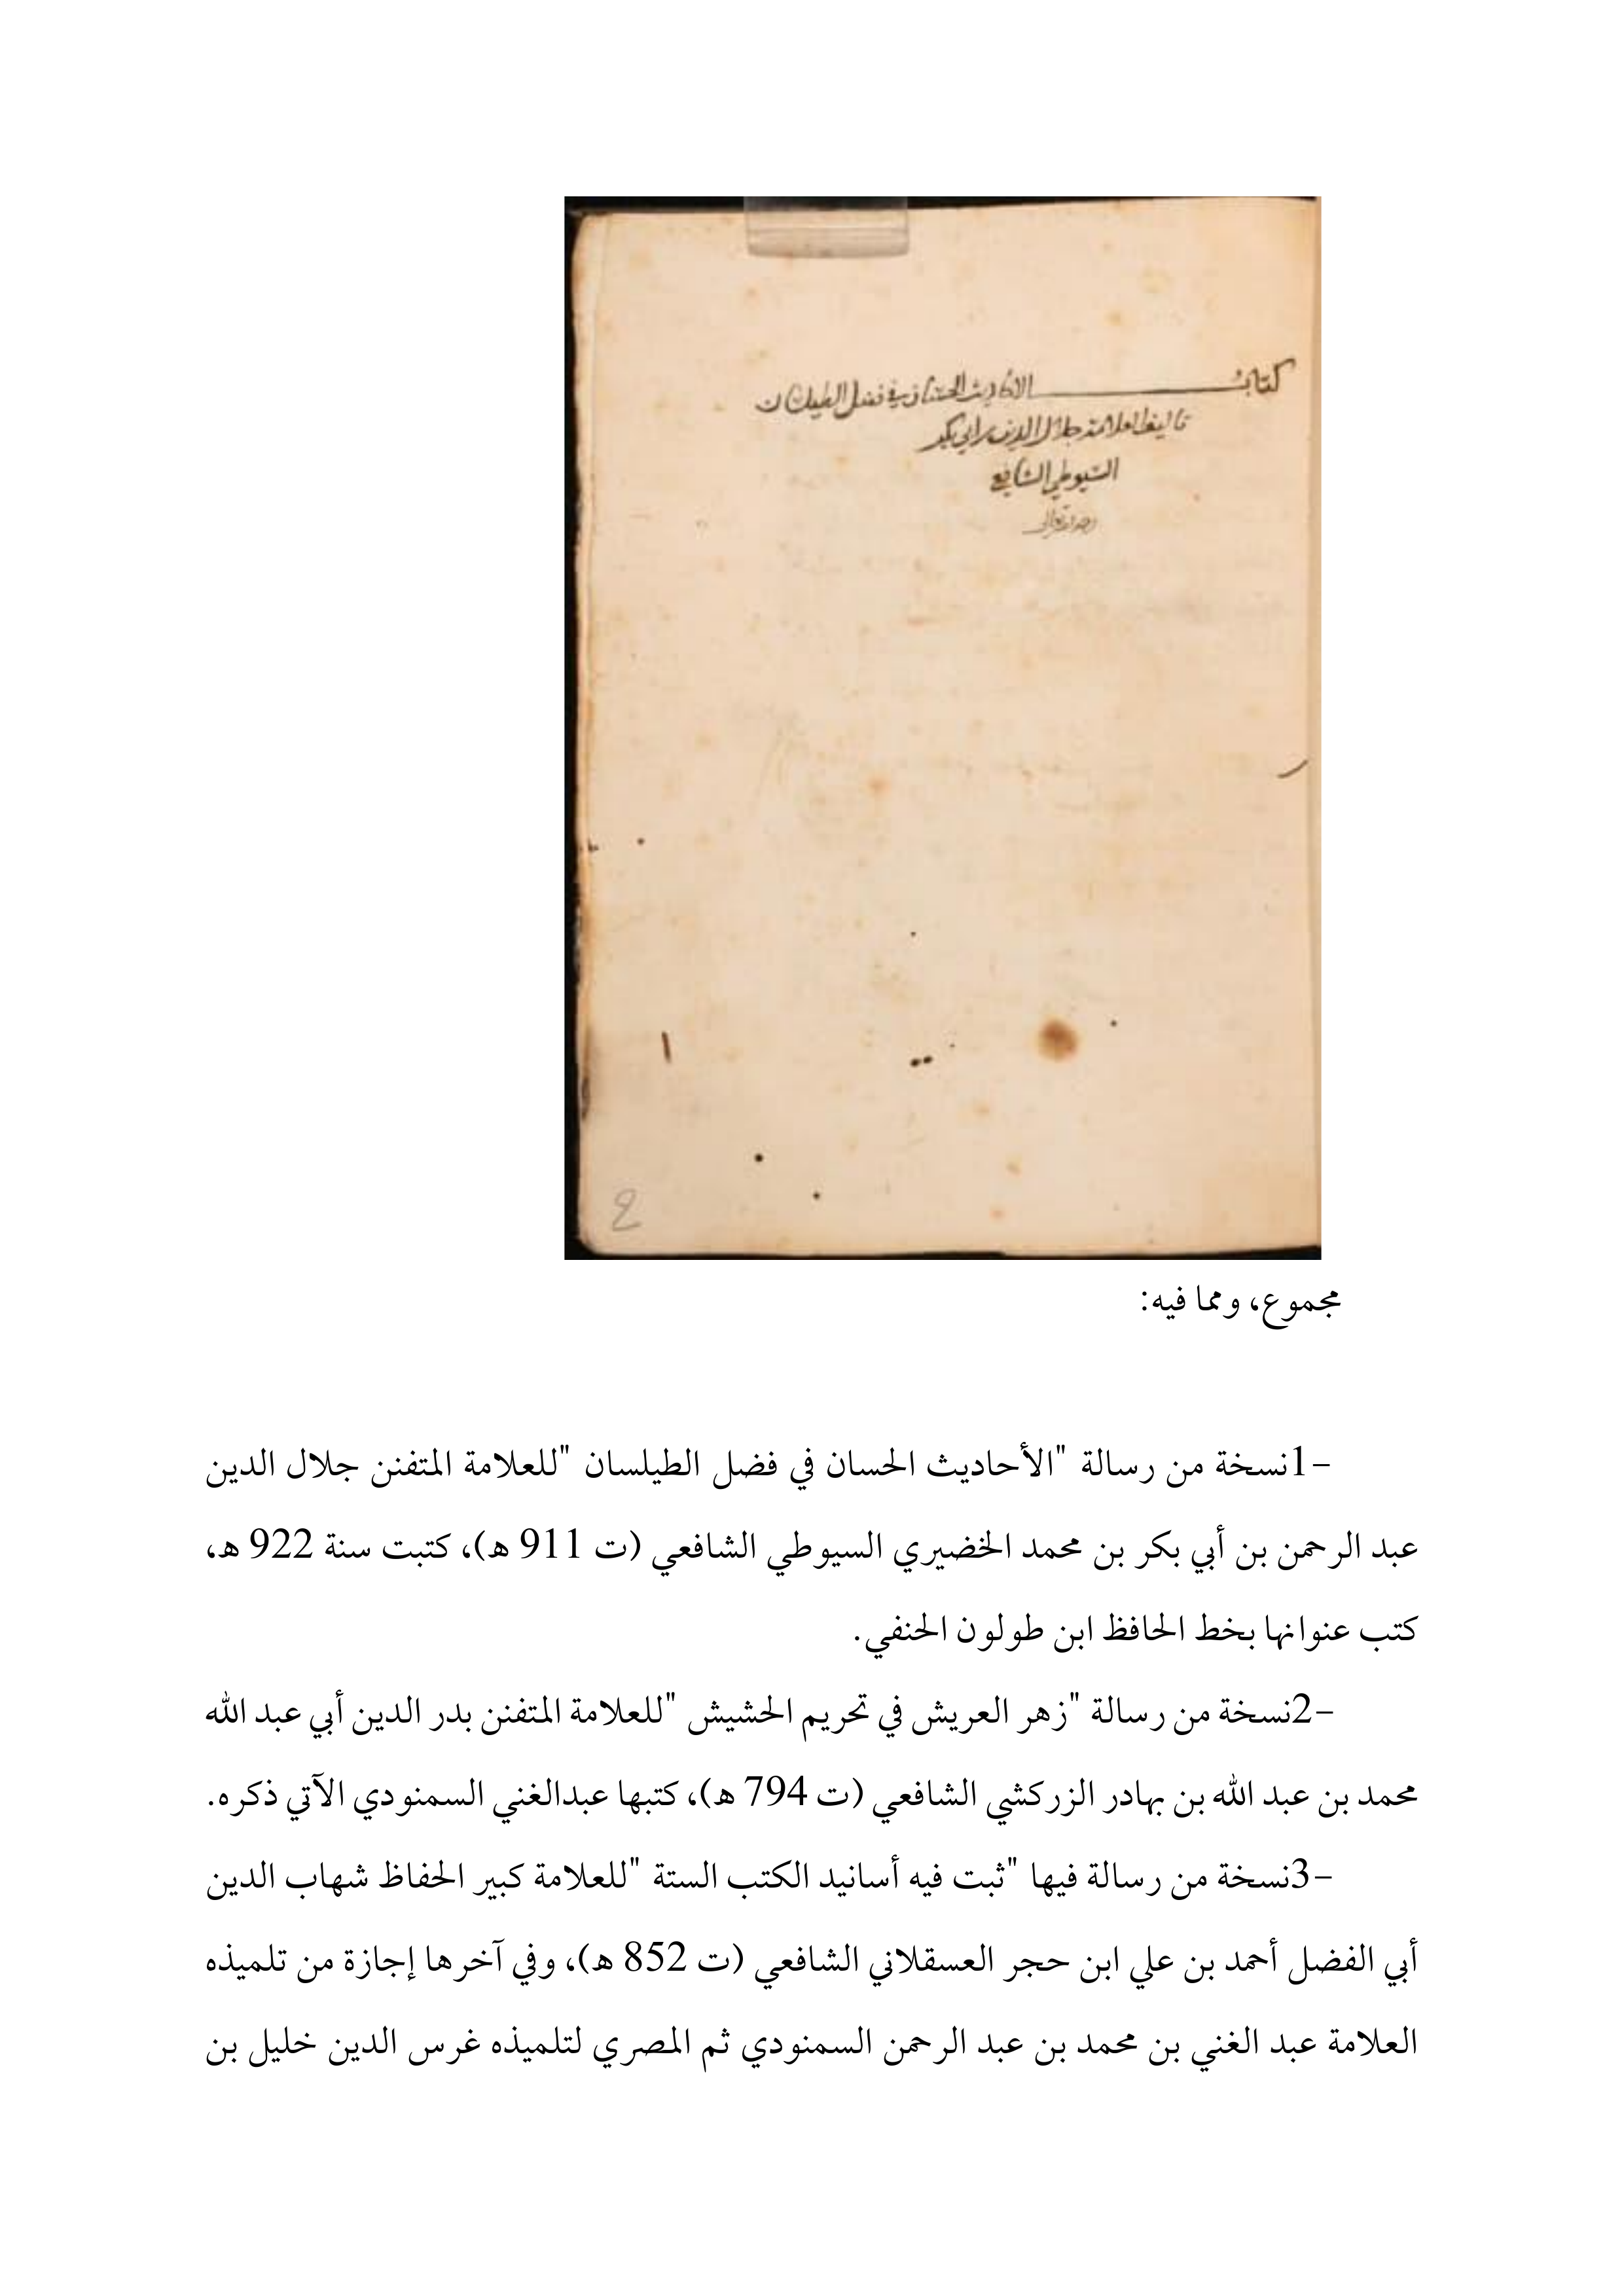 كتاب الاحاديث الحسان في فضل الطيلسان
تاليف العلامة جلال الدين بن ابي بكر
السيوطي الشافعي
رحمه الله تعالى
2
مجموع، ومما فيه:
-1نسخة من رسالة "الأحاديث الحسان في فضل الطيلسان "للعلامة المتفنن جلال الدين
عبد الرحمن بن أبي بكر بن محمد الخضيري السيوطي الشافعي (ت 911 ه)، كتبت سنة 922 ه،
كتب عنوانها بخط الحافظ ابن طولون الحنفي.
-2نسخة من رسالة "زهر العريش في تحريم الحشيش "للعلامة المتفنن بدر الدين أبي عبد الله
محمد بن عبد الله بن بهادر الزركشي الشافعي (ت 794 ه)، كتبها عبدالغني السمنودي الآتي ذكره.
-3نسخة من رسالة فيها "ثبت فيه أسانيد الكتب الستة "للعلامة كبير الحفاظ شهاب الدين
أبي الفضل أحمد بن علي ابن حجر العسقلاني الشافعي (ت 852 ه)، وفي آخرها إجازة من تلميذه
العلامة عبد الغني بن محمد بن عبد الرحمن السمنودي ثم المصري لتلميذه غرس الدين خليل بن